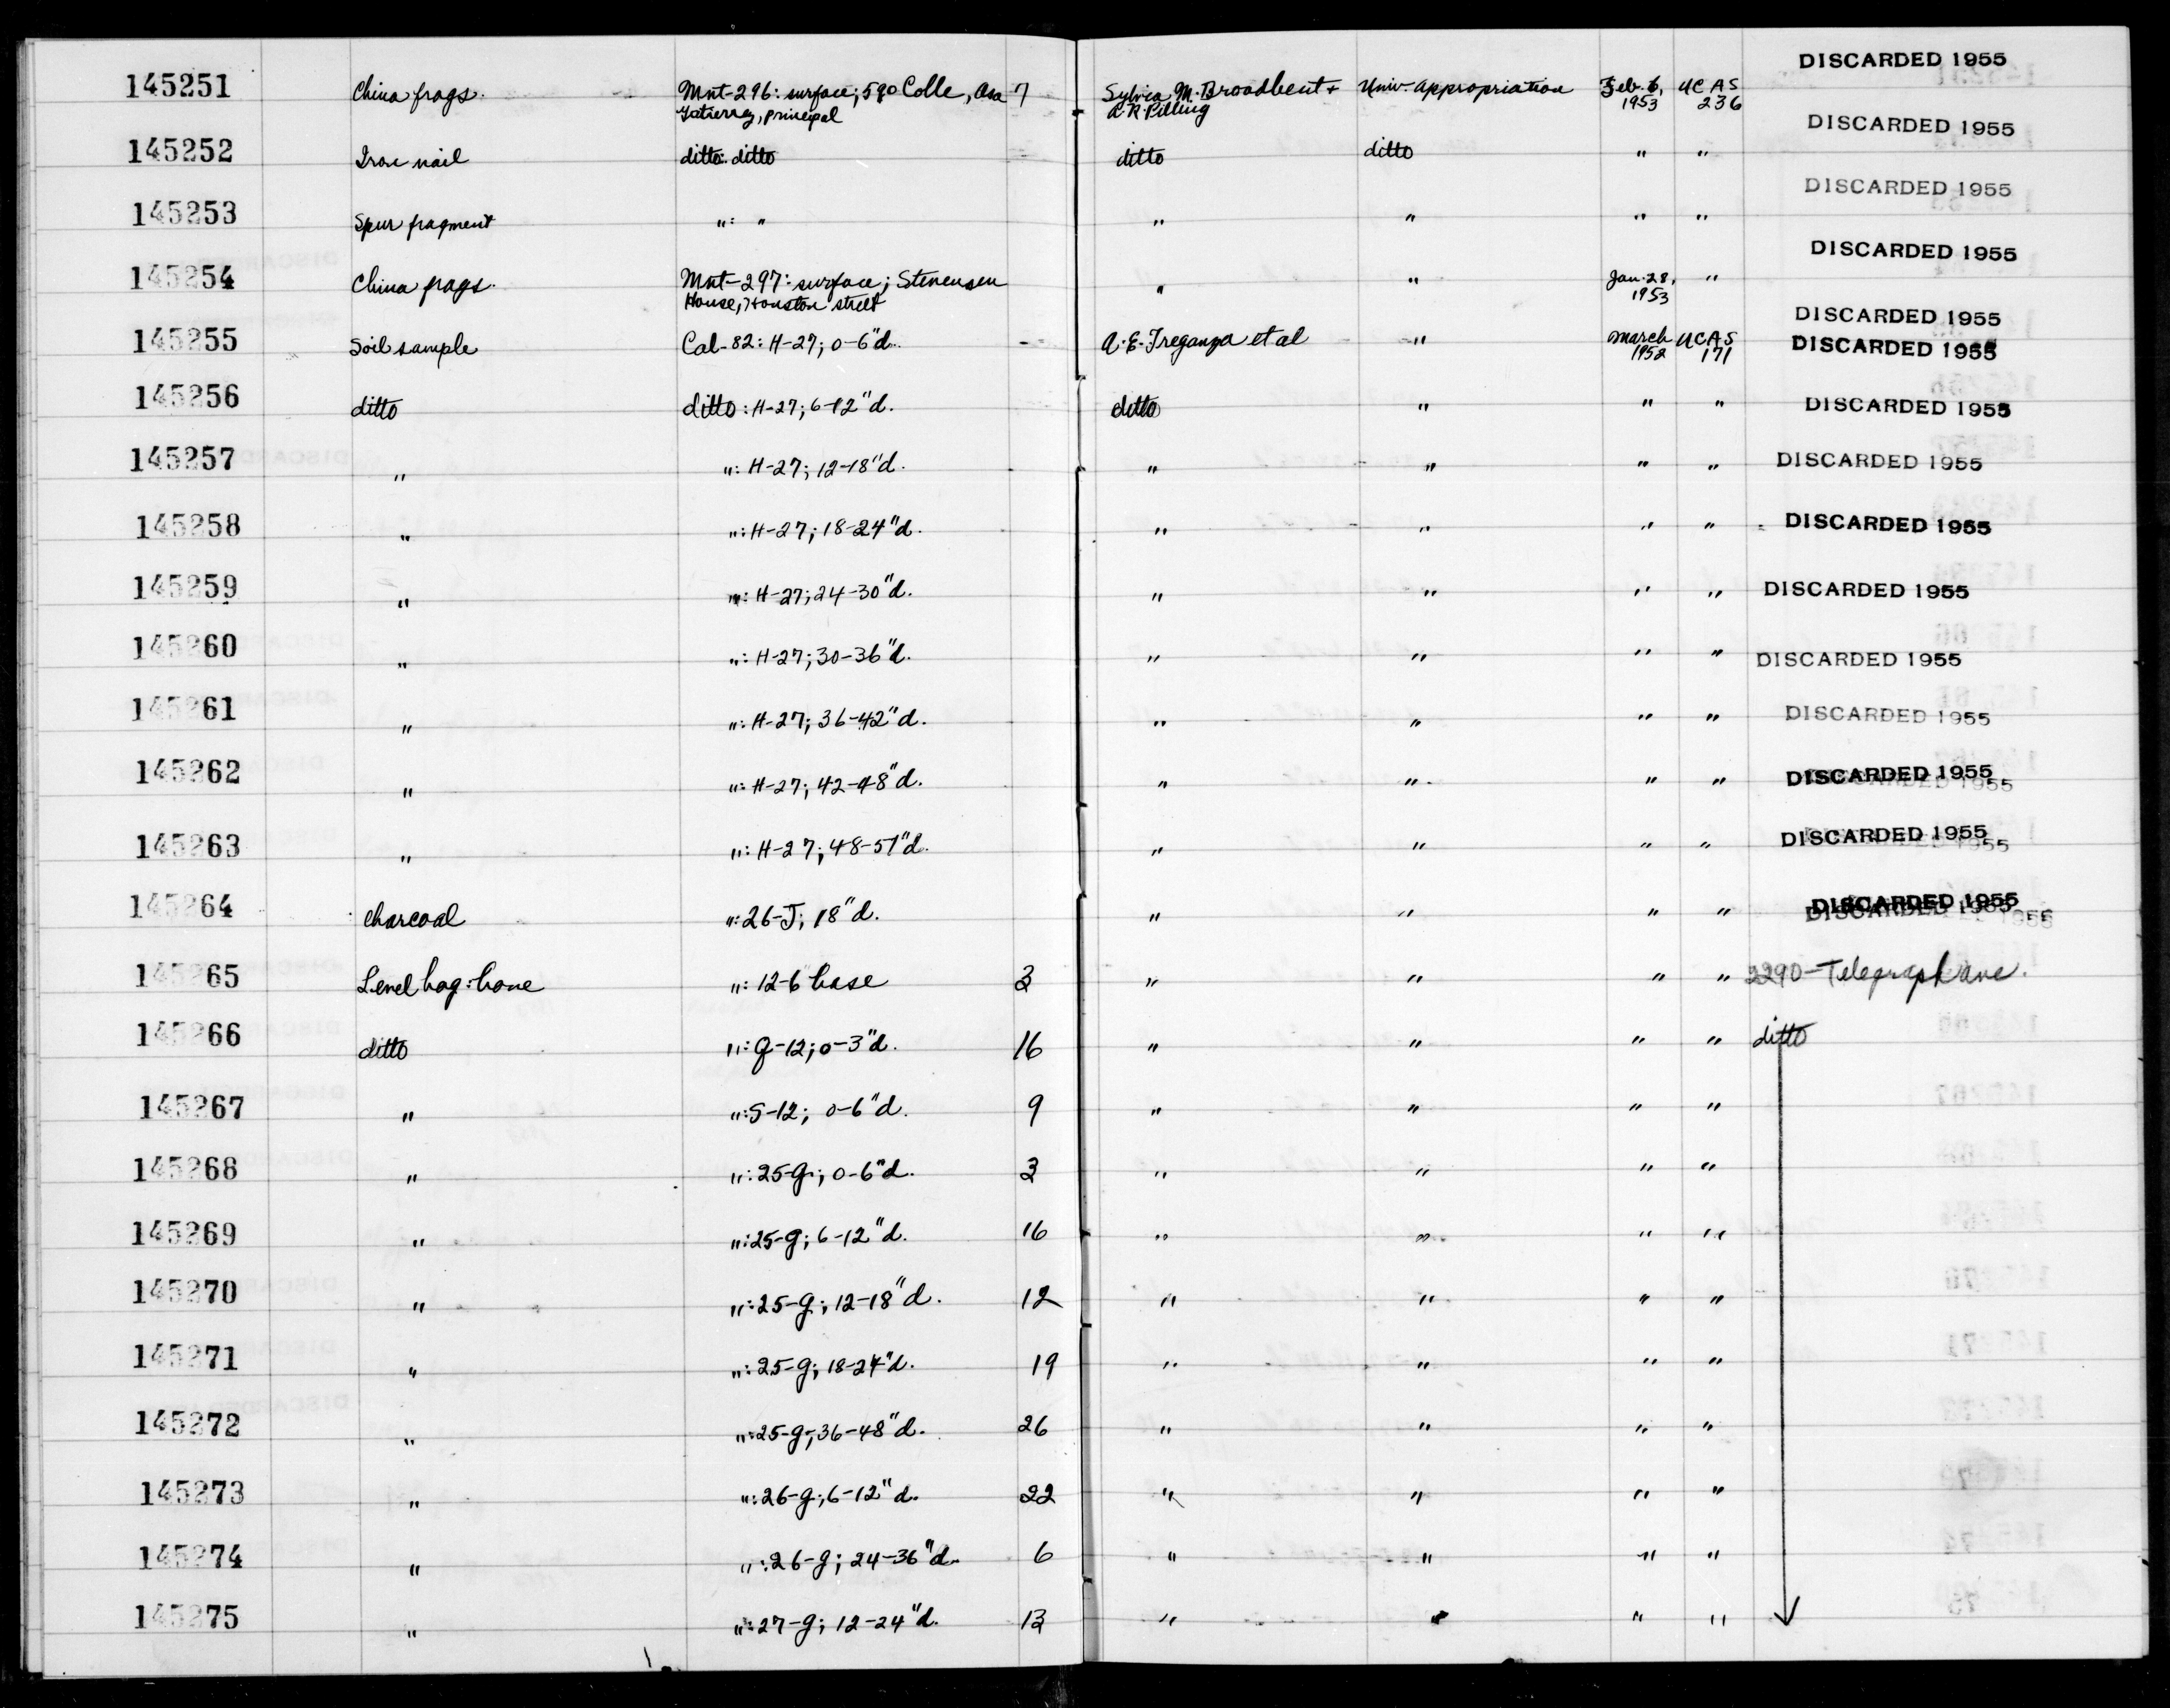 145251 China frags. Mnt-296: surface; 590 Calle, Asa 7 Sylvia M. Broadbent + Univ. appropriation Feb. 6, UCAS DISCARDED 1955
Gutierrez, principal A. R. Pilling 1953 236
145252 Iron nail ditto: ditto ditto ditto " " DISCARDED 1955
145253 Spur fragment ": " " " " " DISCARDED 1955
145254 China frags. Mnt-297: surface; Stevensen " " Jan. 28, " DISCARDED 1955
House, Houston street 1953
DISCARDED 1955
145255 Soil sample Cal-82: H-27; 0-6"d. - A. E. Treganza et al " March UCAS DISCARDED 1955
1952 171
145256 ditto ditto: H-27; 6-12"d. ditto " " " DISCARDED 1955
145257 " ": H-27; 12-18"d. " " " " DISCARDED 1955
145258 " ": H-27; 18-24"d. " " " " DISCARDED 1955
145259 " ": H-27; 24-30"d. " " " " DISCARDED 1955
145260 " ": H-27; 30-36"d. " " " " DISCARDED 1955
145261 " ": H-27; 36-42"d. " " " " DISCARDED 1955
145262 " ": H-27; 42-48"d. " " " " DISCARDED 1955
145263 " ": H-27; 48-51"d. " " " " DISCARDED 1955
145264 Charcoal ": 26-J; 18"d. " " " " DISCARDED 1955
145265 Level bag: bone ": 12-6 base 3 " " " " 2290-Telegraph ave.
145266 ditto ": G-12; 0-3"d. 16 " " " " ditto
145267 " ": S-12; 0-6"d. 9 " " " "
145268 " ": 25-G; 0-6"d. 3 " " " "
145269 " ": 25-G; 6-12"d. 16 " " " "
145270 " ": 25-G; 12-18"d. 12 " " " "
145271 " ": 25-G; 18-24"d. 19 " " " "
145272 " ": 25-G; 36-48"d. 26 " " " "
145273 " ": 26-G; 6-12"d. 22 " " " "
145274 " ": 26-G; 24-36"d. 6 " " " "
145275 " ": 27-G; 12-24"d. 13 " " " "